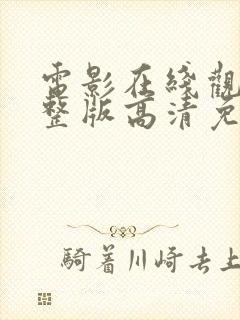 電影在綫觀
整版高清免
騎着川崎去上